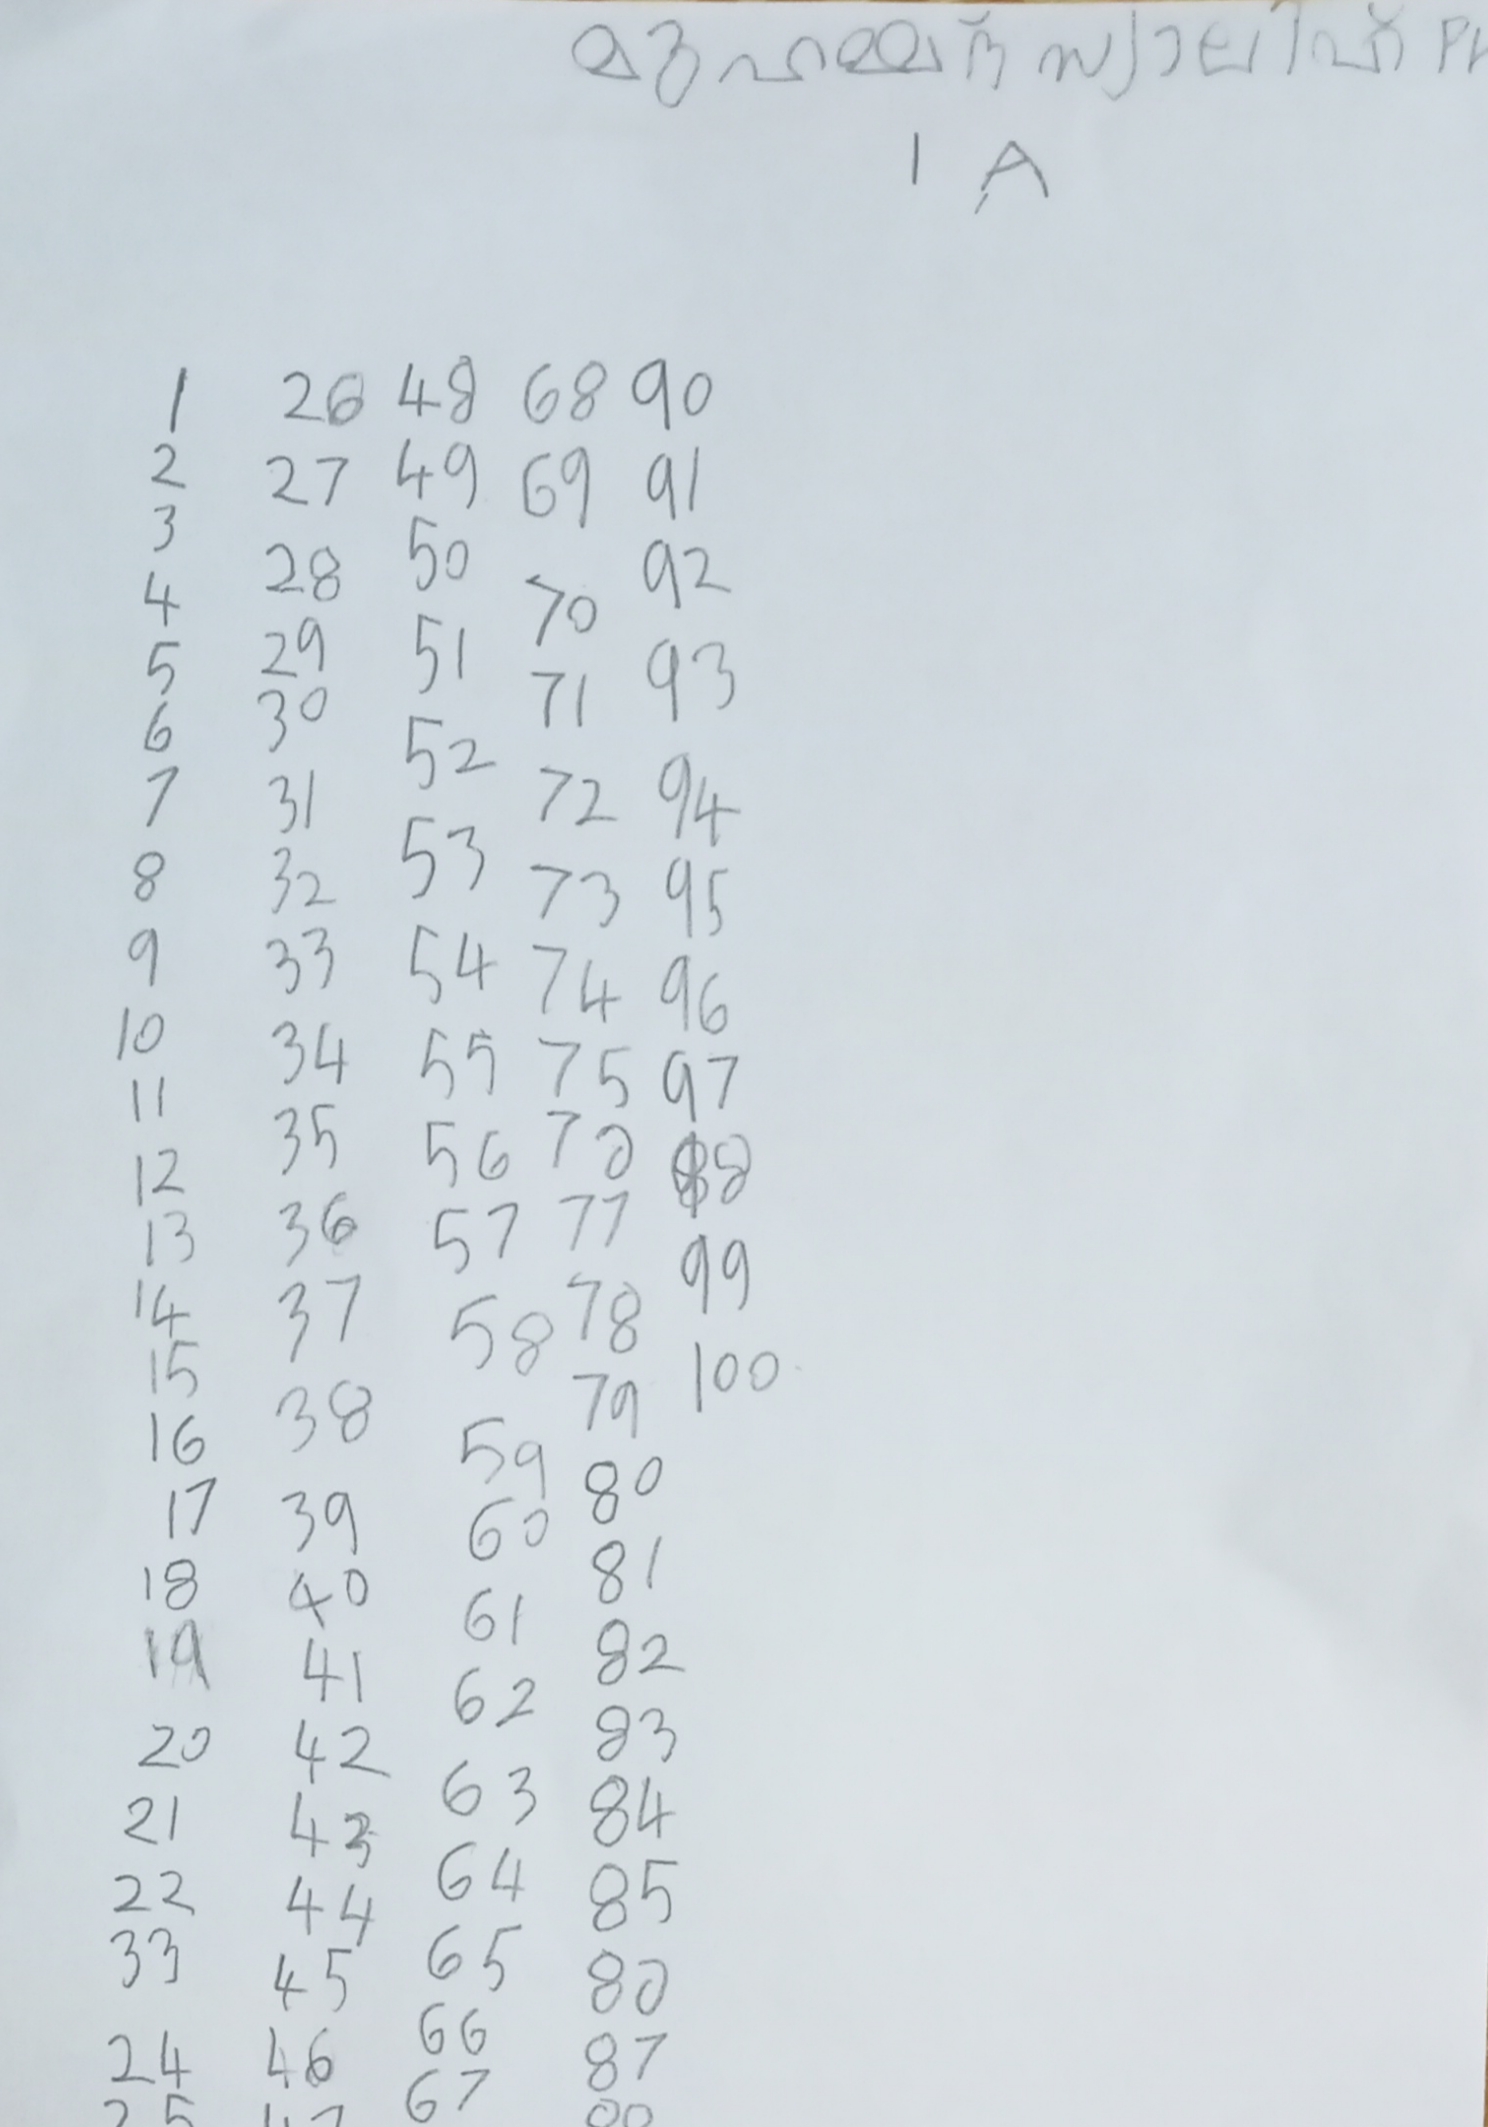 മുഹമ്മദ്
1 A
1
2
3
4
5
6
7
8
9
10
11
12
13
14
15
16
17
18
19
20
21
22
33
24
25
26
27
28
29
30
31
32
33
34
35
36
37
38
39
40
41
42
43
44
45
46
47
48
49
50
51
52
53
54
55
56
57
58
59
60
61
62
63
64
65
66
67
68
69
70
71
72
73
74
75
76
77
78
79
80
81
82
83
84
85
86
87
88
90
91
92
93
94
95
96
97
98
99
100